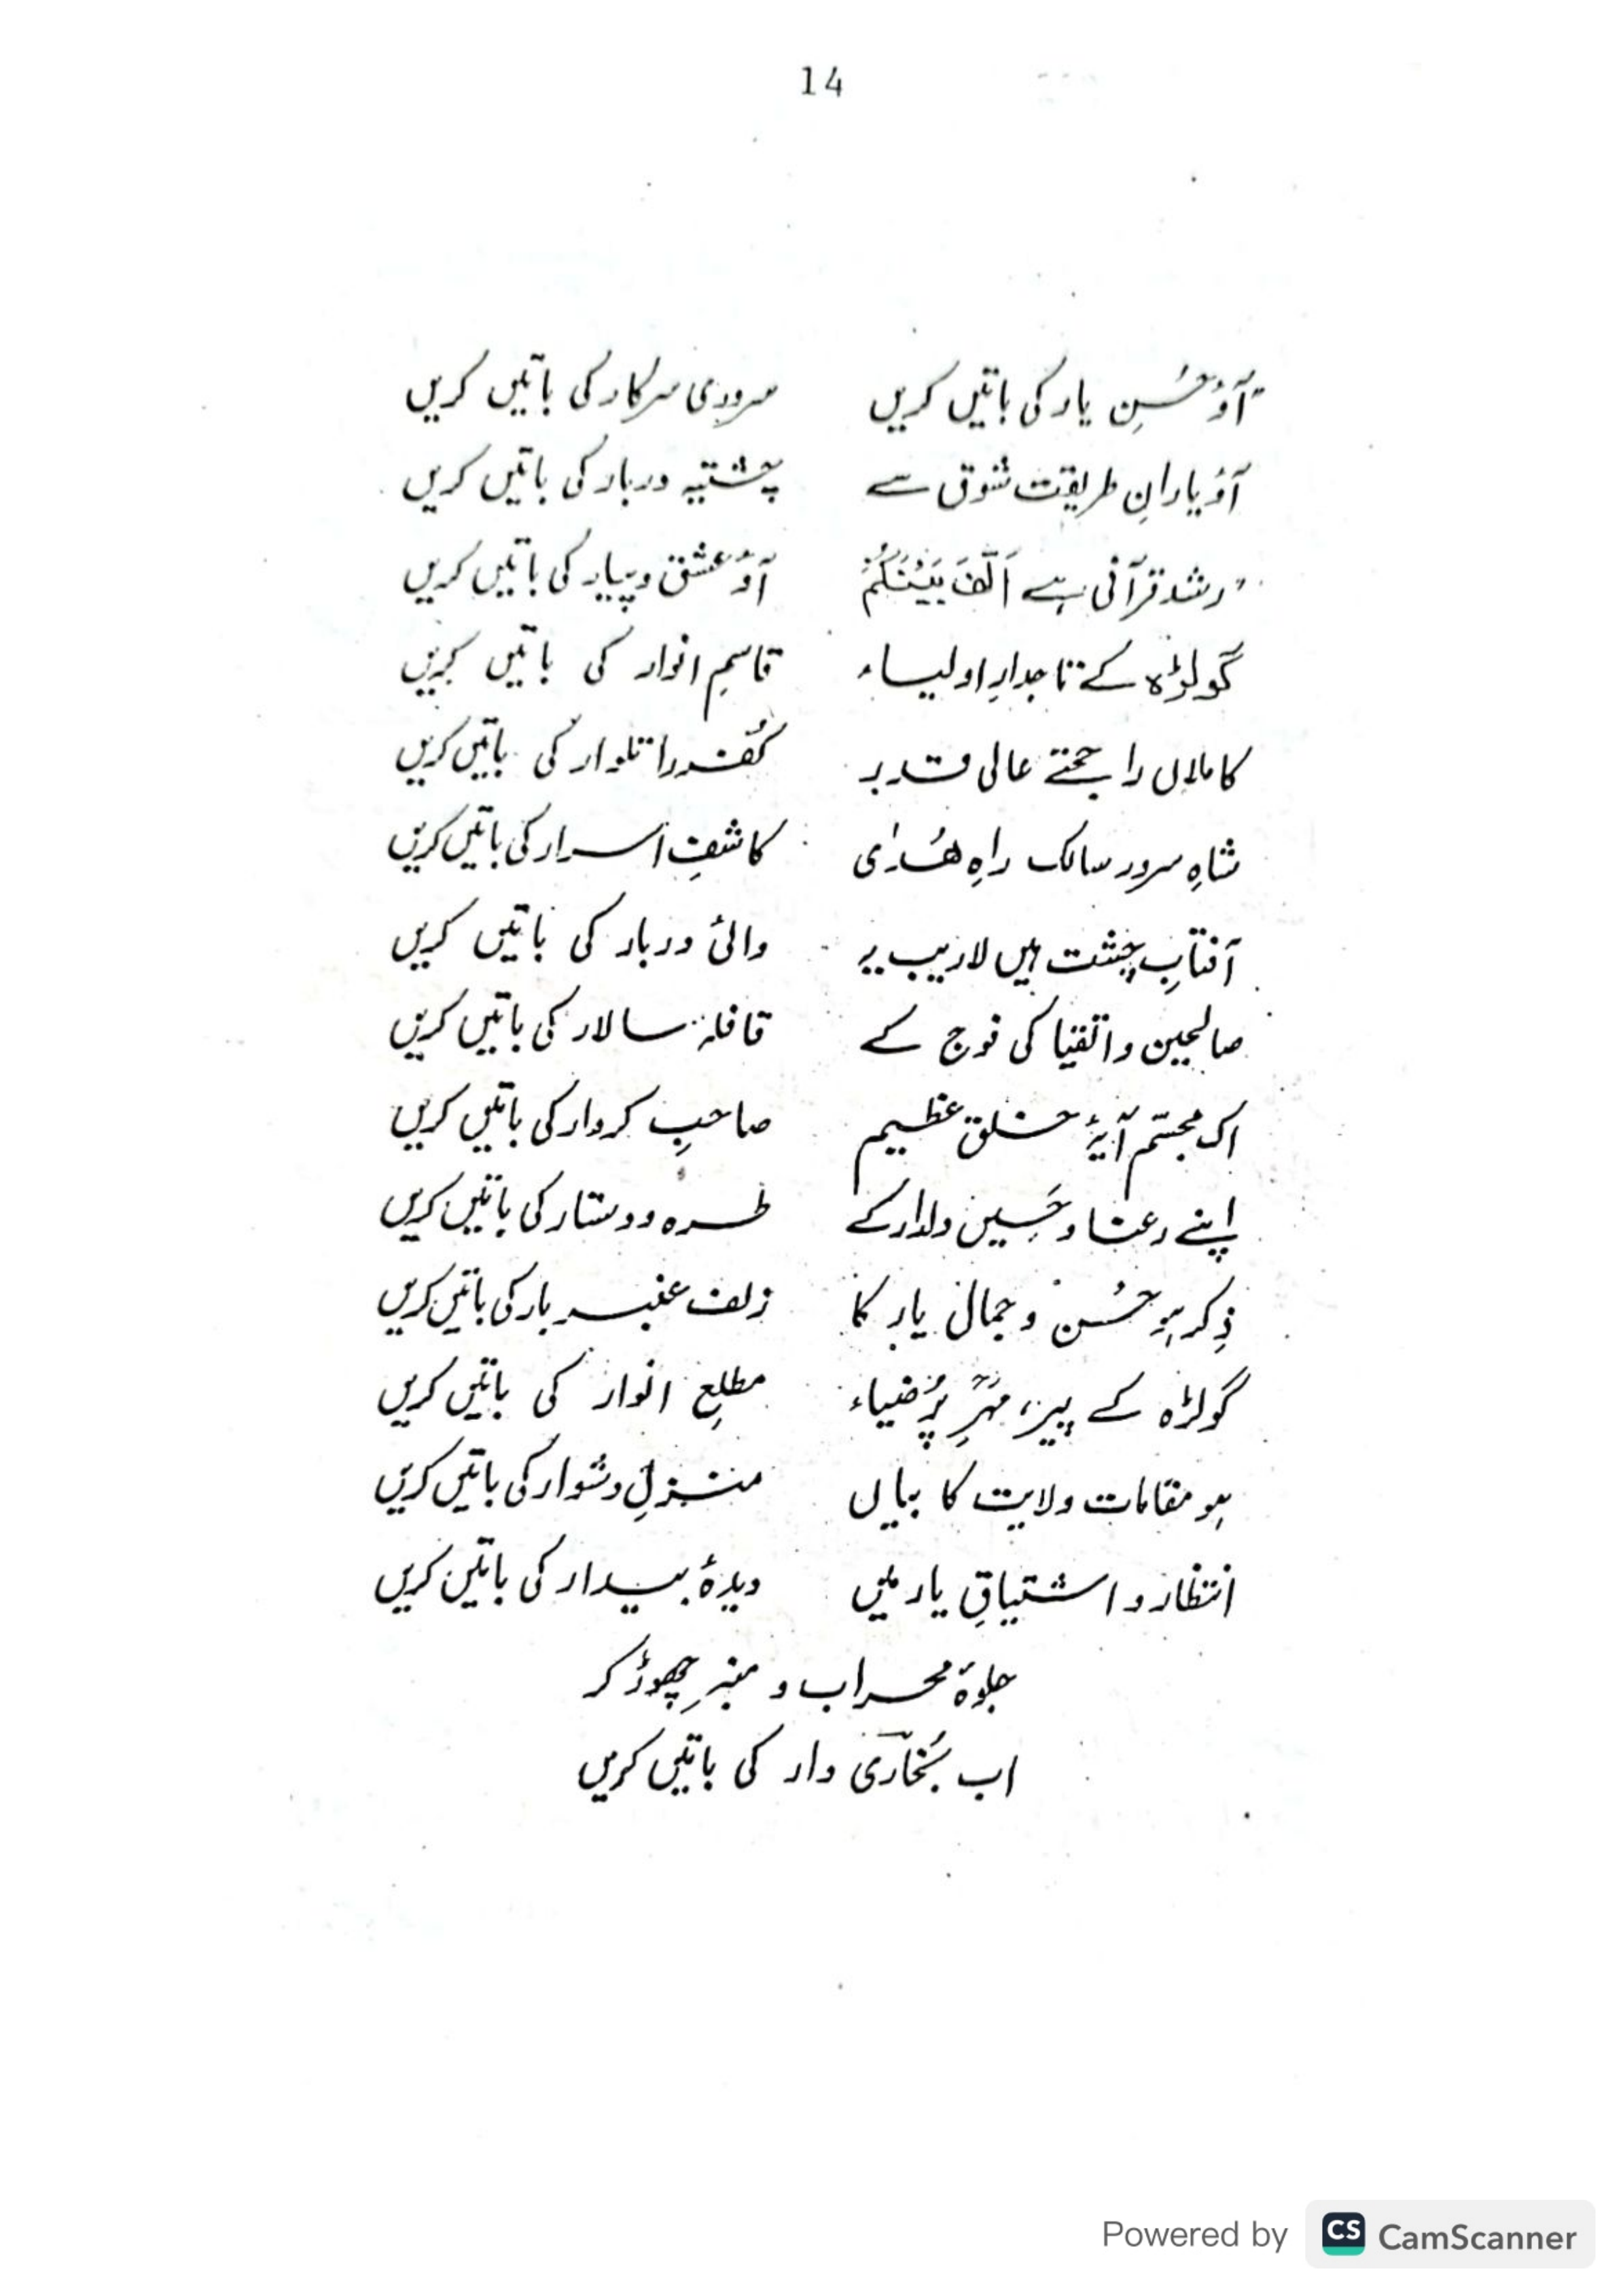 14
آؤ حُسنِ یار کی باتیں کریں سروری سرکار کی باتیں کریں
آؤ یارانِ طریقت شوق سے چشتیہ دربار کی باتیں کریں
رشد قرآنی ہے اَلَّفَ بَیْنَکُمْ آؤ عشق و پیار کی باتیں کریں
گولڑہ کے تاجدارِ اولیاء قاسمِ انوار کی باتیں کریں
کاملاں را حجتے عالی قدر کُفر را تلوار کی باتیں کریں
شاہِ سرور سالک راہِ ھُدٰی کاشفِ اسرار کی باتیں کریں
آفتابِ چشت ہیں لاریب یہ والئ دربار کی باتیں کریں
صالحین و اتقیا کی فوج کے قافلہ سالار کی باتیں کریں
اک مجسّم آیۂ خلق عظیم صاحبِ کردار کی باتیں کریں
اپنے رعنا و حَسِیں دلدار کے طرہ و دستار کی باتیں کریں
ذِکر ہو حُسن و جمالِ یار کا زلف عنبر بار کی باتیں کریں
گولڑہ کے پیر، مُہرِ پُر ضیاء مطلعِ انوار کی باتیں کریں
ہو مقامات ولایت کا بیاں منزلِ دشوار کی باتیں کریں
انتظار و اشتیاقِ یار میں دیدۂ بیدار کی باتیں کریں
جلوۂ محراب و منبر چھوڑ کر
اب بُخاری دار کی باتیں کریں
Powered by CS CamScanner